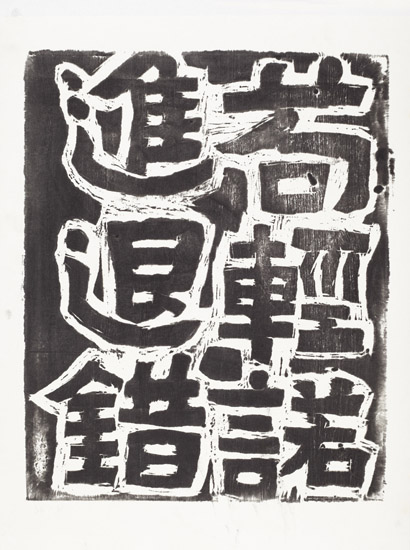 苟輕諾
進退錯